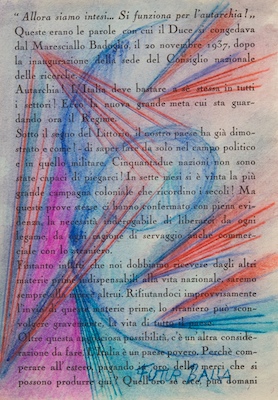 “ Allora siamo intesi... Si funziona per l'autarchia ! „
Queste erano le parole con cui il Duce si congedava
dal Maresciallo Badoglio, il 20 novembre 1937, dopo
la inaugurazione della sede del Consiglio nazionale
delle ricerche
Autarchia ! L'Italia deve bastare a sè stessa in tutti
i settori ! Ecco la nuova grande meta cui sta guar-
dando ora il Regime.
Sotto il segno del Littorio, il nostro paese ha già dimo-
strato e come ! - di saper far da solo nel campo politico
quello militare. Cinquanta due nazioni non sono
state capaci di piegarci ! In sette mesi si è vinta la più
grande campagna coloniale che ricordino i secoli ! Ma
queste prove stesse ci hanno confermato con piena evi-
denza la necessità inderogabile di liberarci da ogni
legame, da ogni situazione di servaggio anche commer-
ciale con lo straniero.
Fintanto infatti che noi dobbiamo ricevere dagli altri
materie prime indispensabili alla vita nazionale, saremo
sempre altrui. Rifiutandoci improvvisamente
l'invio di queste materie prime, lo straniero può scon-
volgere gravemente la vita di
Oltre questa dolorosa possibilità, c'è un altra conside-
razione da fare. L'Italia è un paese povero. Perchè com-
perare all'estero, pagando in oro, delle merci che si
possono produrre qui? Quell'oro se esce, può domani
FUTUR BALLA